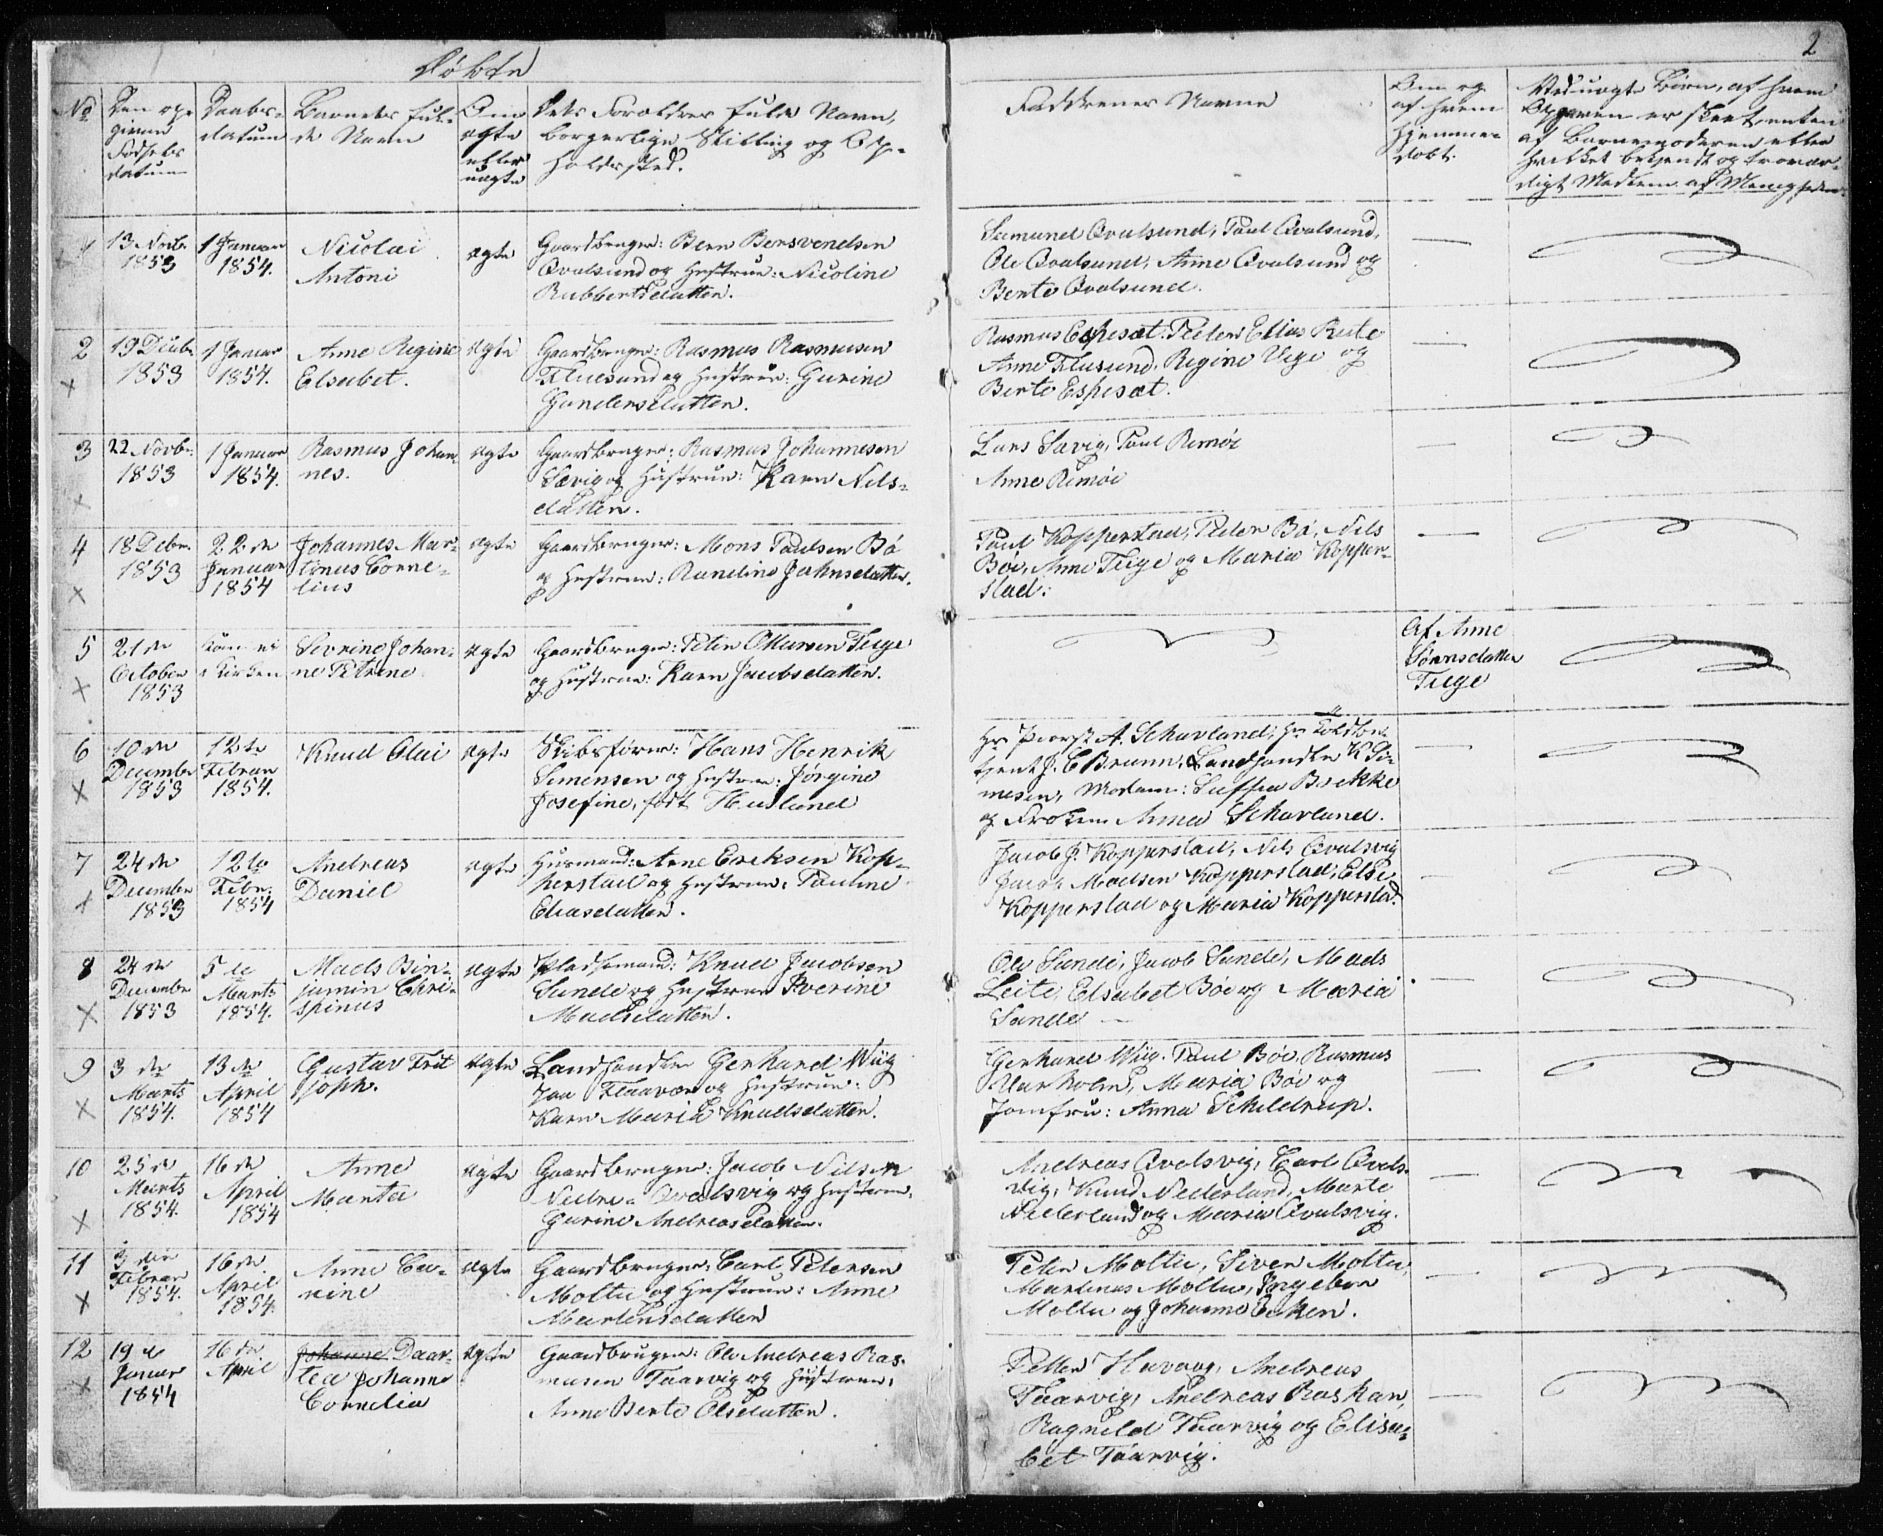 2
Døbte
No
Den op-
givne
Fødsels
datum
Daabs-
datum
Barnets ful-
de Navn
Om
ægte
eller
uægte
Dets Forældres fulde Navn,
borgerlige Stilling og Op-
holdssted.
Faddrenes Navne
Om og
af hvem
hjemme-
døbt.
Ved uægte Børn, af hvem
Opgaven er skeet, enten
af Barnemoderen eller
hvilket bekjendt og trovær-
digt Medlem af Menigheden
13 Novb.
1853
1 Januar
1854.
Nicolai
Antoni
ægte
Gaardbruger: Bern Bersvendsen
Qvalsund og Hustrue: Nicoline
Rubbertsdatter.
Samund Qvalsund, Paul Qvalsund,
Ole Qvalsund, Anne Qvalsund og
Berte Qvalsund.
2
19 Decbr
1853
1 Januar
1854.
Anne Regine
Elsebet.
ægte
Gaardbruger: Rasmus Rasmusen
Fluesund og Hustrue: Gurine
Gundersdatter.
Rasmus Espesæt, Peder Elias
Anne Flusund, Regine og
Berte Espesæt.
3
22 Novbr.
1853
1 Januar
1854.
Rasmus Johan-
nes.
ægte
Gaardbruger: Rasmus Johannesen
Sævig og Hustrue: Karn Nils-
datter.
Lars Savig, Paul Remøe
Anne Remøe
4
18 Debr.
1853
22 de
Januar
1854
Johannes Mar-
tinus Corne-
lius
ægte
Gaardbruger: Mons Paulsen Bø
og Hustrue: Randine Johnsdatter.
Paul Kopperstad, Peder Bø, Nils
Bøe, Anne Teige og Maria Kopper-
stad.
5
21 de
October
1853
Kom ei
i Kirken
Sevrine Johan-
ne Petrine
ægte
Gaardbruger: Peter Ottarsen Teige
og Hustrue: Karn Jacobsdatter.
Af Anne
Sørnsdatter
Teige
6
10 de
December
1853
12 te
Februar
1854.
Knud Olai
ægte
Skibsfører: Hans Henrik
Simensen og Hustrue: Jørgine
Josefine, født
Hr Provst A. Schavland, Hr Toldbe-
tjent J. C Brunn, Landhandler K Si-
mesen, Madam: Brekke
og Frøken Anna Schavland.
7
24 de
December
1853
12 te
Febr.
1854
Andreas
Daniel
ægte
Husmand: Arne Eriksen Kop-
perstad og Hustrue: Pauline
Eliasdatter.
Jacob J. Kopperstad, Nils Qvalsvig
Jacob Madsen Kopperstad, Else
Kopperstad og Maria Kopperstad.
8
24 de
December
1853
5 te
Marts
1854.
Mads Bin-
jamin Chri-
spinus
ægte
Pladsmand: Knud Jacobsen
Sande og Hustrue Iverine
Madsdatter.
Ole Sande, Jacob Sande, Mads
Leite, Elsebet Bøe og Maria
Sande
9
3 de
Marts
1854.
13 de
April
1854
Gustav Frit
joph.
ægte
Landhandler Gerhard Wiig
paa Flaavær og Hustrue:
Karn Maria Knudsdatter.
Gerhard Wiig. Paul Bøe, Rasmus
Varholm, Maria Bøe og
Jomfru: Anna Schildrup.
10
25 de
Marts
1854.
16 de
April
1854
Anne
Marta
ægte
Gaardbruger: Jacob Nilsen
Nedre Qvalsvig og Hustrue,
Gurine Andreasdatter.
Andreas Qvalsvig, Carl Qvals-
vig, Knud Nederland, Marte
Nederland og Maria Qvalsvig.
11
3 die
Februar
1854.
16 de
April
1854.
Anne Ca-
rine
ægte
Gaardbruger: Carl Petersen
Moltu og Hustrue: Anne
Martensdatter
Peter Moltu, Siver Moltu,
Martinus Moltu, Ingebor
Moltu og Johanne
12
19 de
Januar
1854
16 de
April
Johanne Daar-
tea Johanne
Cornelia
ægte
Gaardbruger: Ole Andreas Ras-
musen Taarvig og Hustrue,
Anne Berte Olsdatter.
Petter Havaag, Andreas
Taarvig, Andreas Raskar,
Ragnild Taarvig og Elisa-
bet Taarvig.